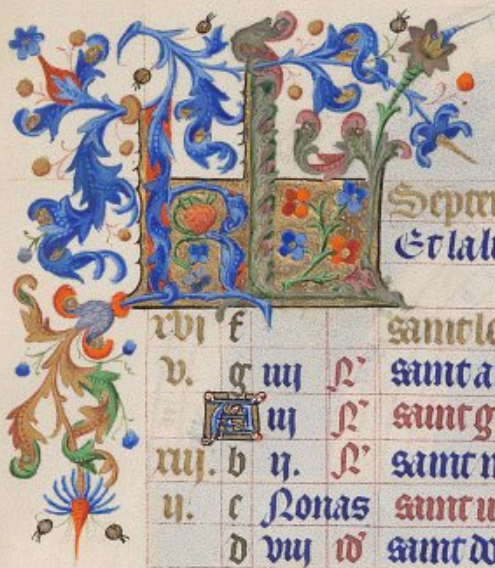 KL
Septem
Et la l
xvj f saint le
v. g iiij N' saint a
A iij N' saint g
xiij. b ij. N' saint n
ij. c Nonas saint
d viij id' saint do